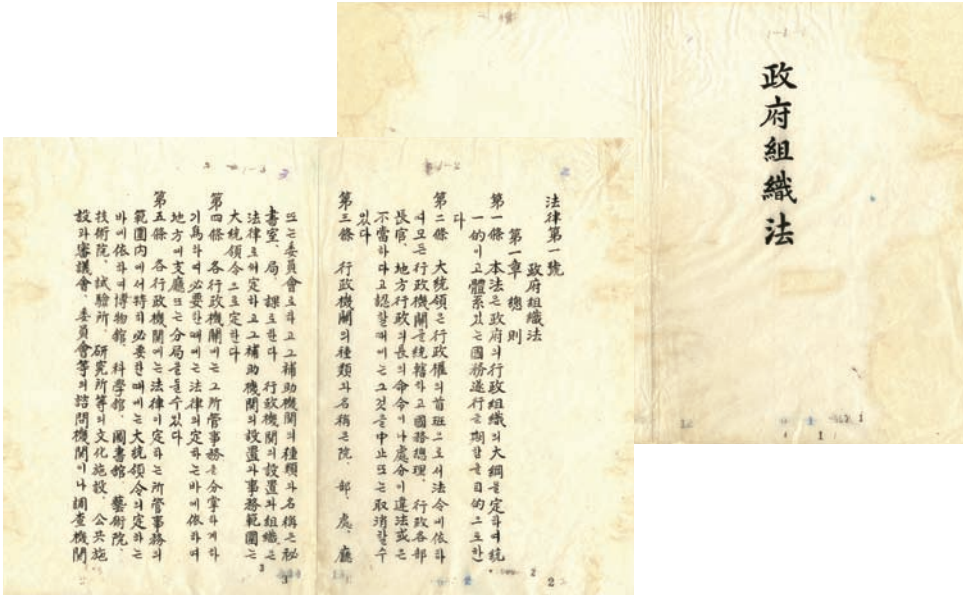 政府組織法
法律第一號
政府組織法
第一章 總則
第一條 本法은政府의行政組織의大綱을定하여統
一的이고體系있는國務遂行을期함을目的으로한
다
第二條 大統領은行政權의首班으로서法令에依하
여모든行政機關을統轄하고國務總理、行政各部
長官、地方行政의長의命令이나處分이違法或은
不當하다고認할때에는그것을中止또는取消할수
있다
第三條 行政機關의種類와名稱은院、部、處、廳
또는委員會로하고그補助機關의種類와名稱은秘
書室、局、課로한다 行政機關의設置와組織은
法律로써定하고그補助機關의設置와事務範圍는
大統領令으로定한다
第四條 各行政機關에는그所管事務를分掌하게하
기爲하여必要한때에는法律의定하는바에依하여
地方에支廳또는分局을둘수있다
第五條 各行政機關에는法律이定하는所管事務의
範圍內에서特히必要한때에는大統領令의定하는
바에依하여博物館、科學館、圖書館、藝術院、
技術院、試驗所、研究所等의文化施設、公共施
設과審議會、委員會等의諮問機關이나調査機關
1
2
3